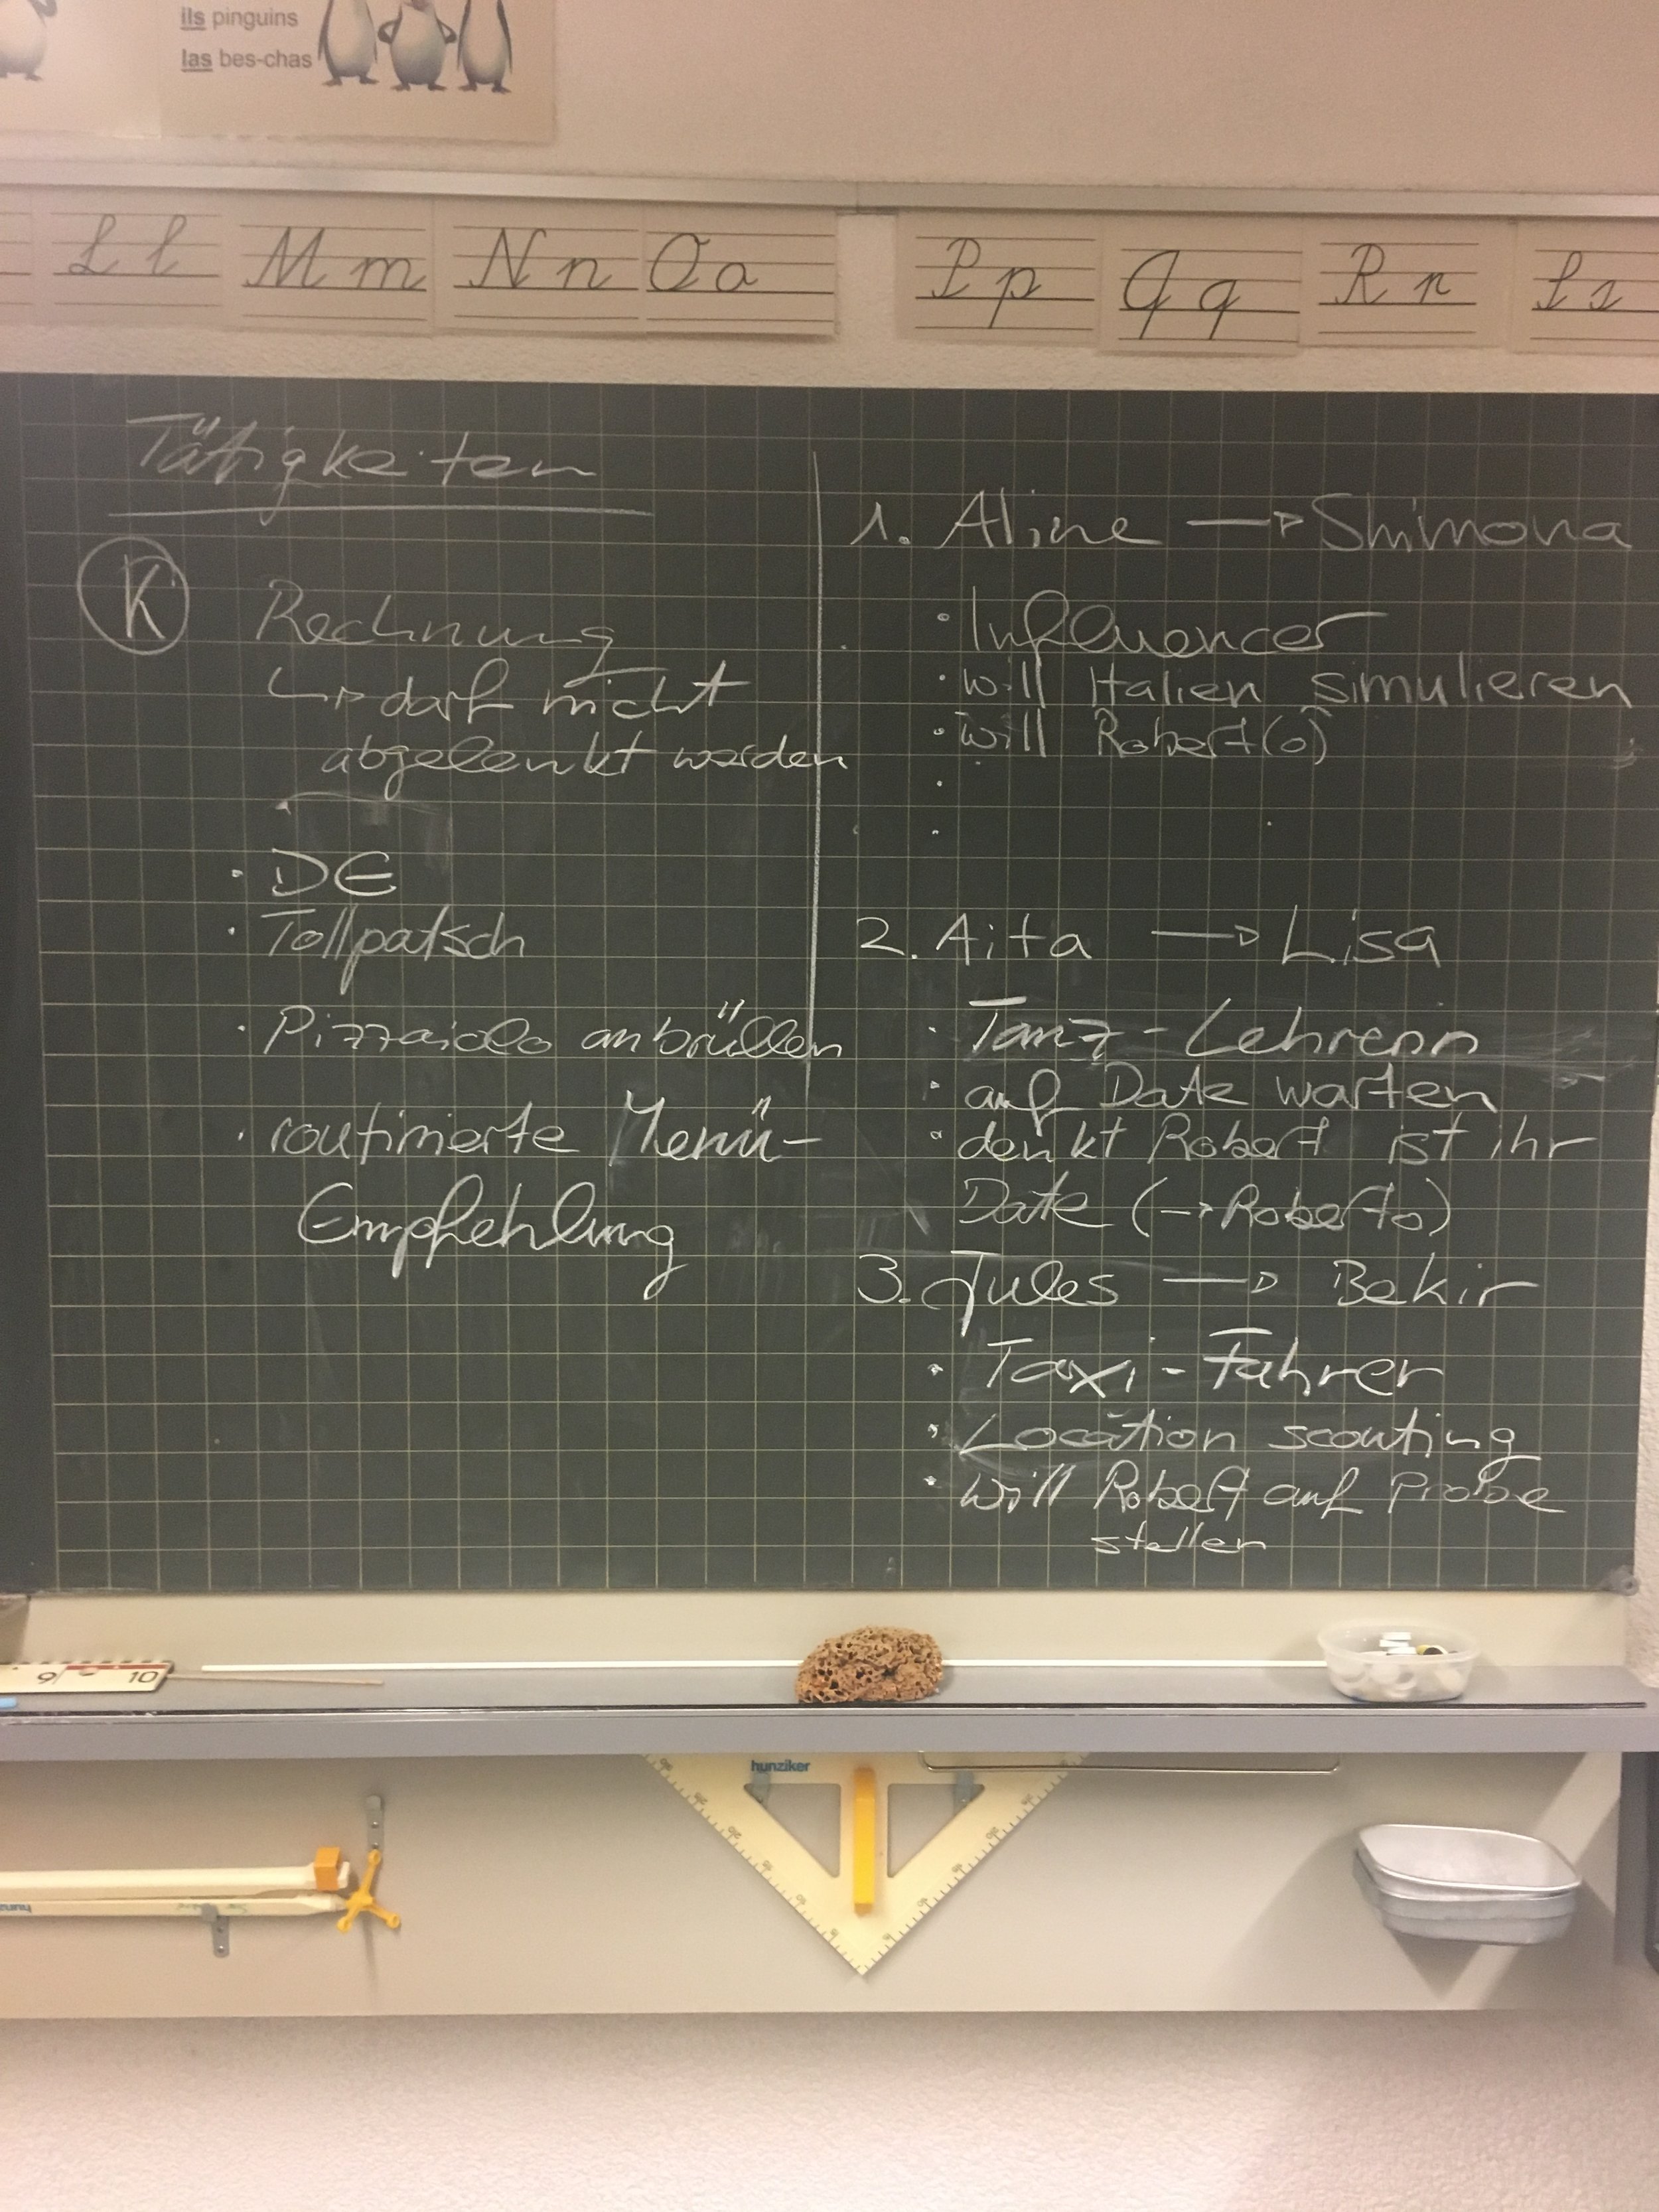 ils pinguins
las bes-chas
L l M m N n O o P p Q q R r S s
Tätigkeiten
K Rechnung
↳ darf nicht
abgelenkt werden
· DE
· Tollpatsch
· Pizzaiolo anbrüllen
· routinierte Menü-
Empfehlung
1. Aline → Shimona
· Influencer
· will Italien simulieren
· will Robert(o)
·
·
2. Aita → Lisa
· Tanz-Lehrerin
· auf Date warten
· denkt Robert ist ihr
Date (→Roberto)
3. Jules → Bekir
· Taxi-Fahrer
· Location scouting
· will Robert auf Probe
stellen
9 10
hunziker
hunziker